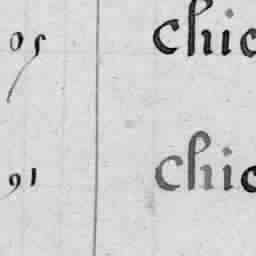 05 chic
91 chic